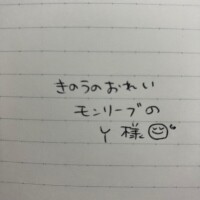 きのうのおれい
モンリーブの
Y 様